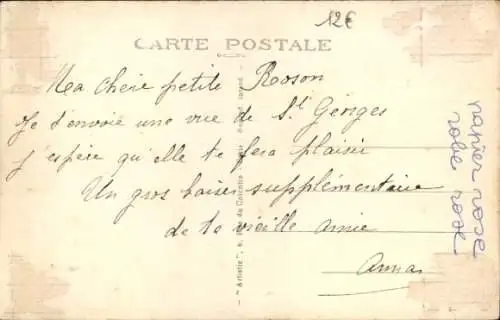 12€
CARTE POSTALE
Ma chere petite Roson
Je t'envoie une vue de St Georges
j'espère qu'elle te fera plaisir
Un gros baiser supplémentaire
de ta vieille amie
Anna
panier rose
robe rose
"Artistic", 5, Rue de Calcutta